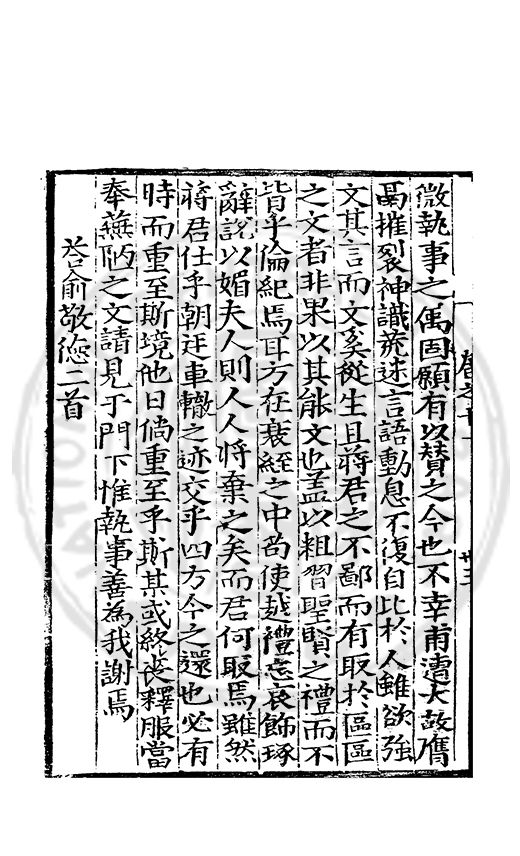 微執事之厲固願有以贊之今也不幸甫遭大故膺
鬲摧裂神識荒迷言語動息不復自比於人雖欲強
文其言而文奚從生且蔣君之不鄙而有取於區區
之文者非果以其能文也盖以粗習聖賢之禮而不
背乎倫紀焉耳方在衰絰之中苟使越禮忘哀飾琢
辭說以媚夫人則人人將棄之矣而君何取焉雖然
蔣君仕乎朝廷車轍之迹交乎四方今之還也必有
時而重至斯境他日倘重至乎斯某或終喪釋服當
奉蕪陋之文請見于門下惟執事善為我謝焉
答俞敬德二首